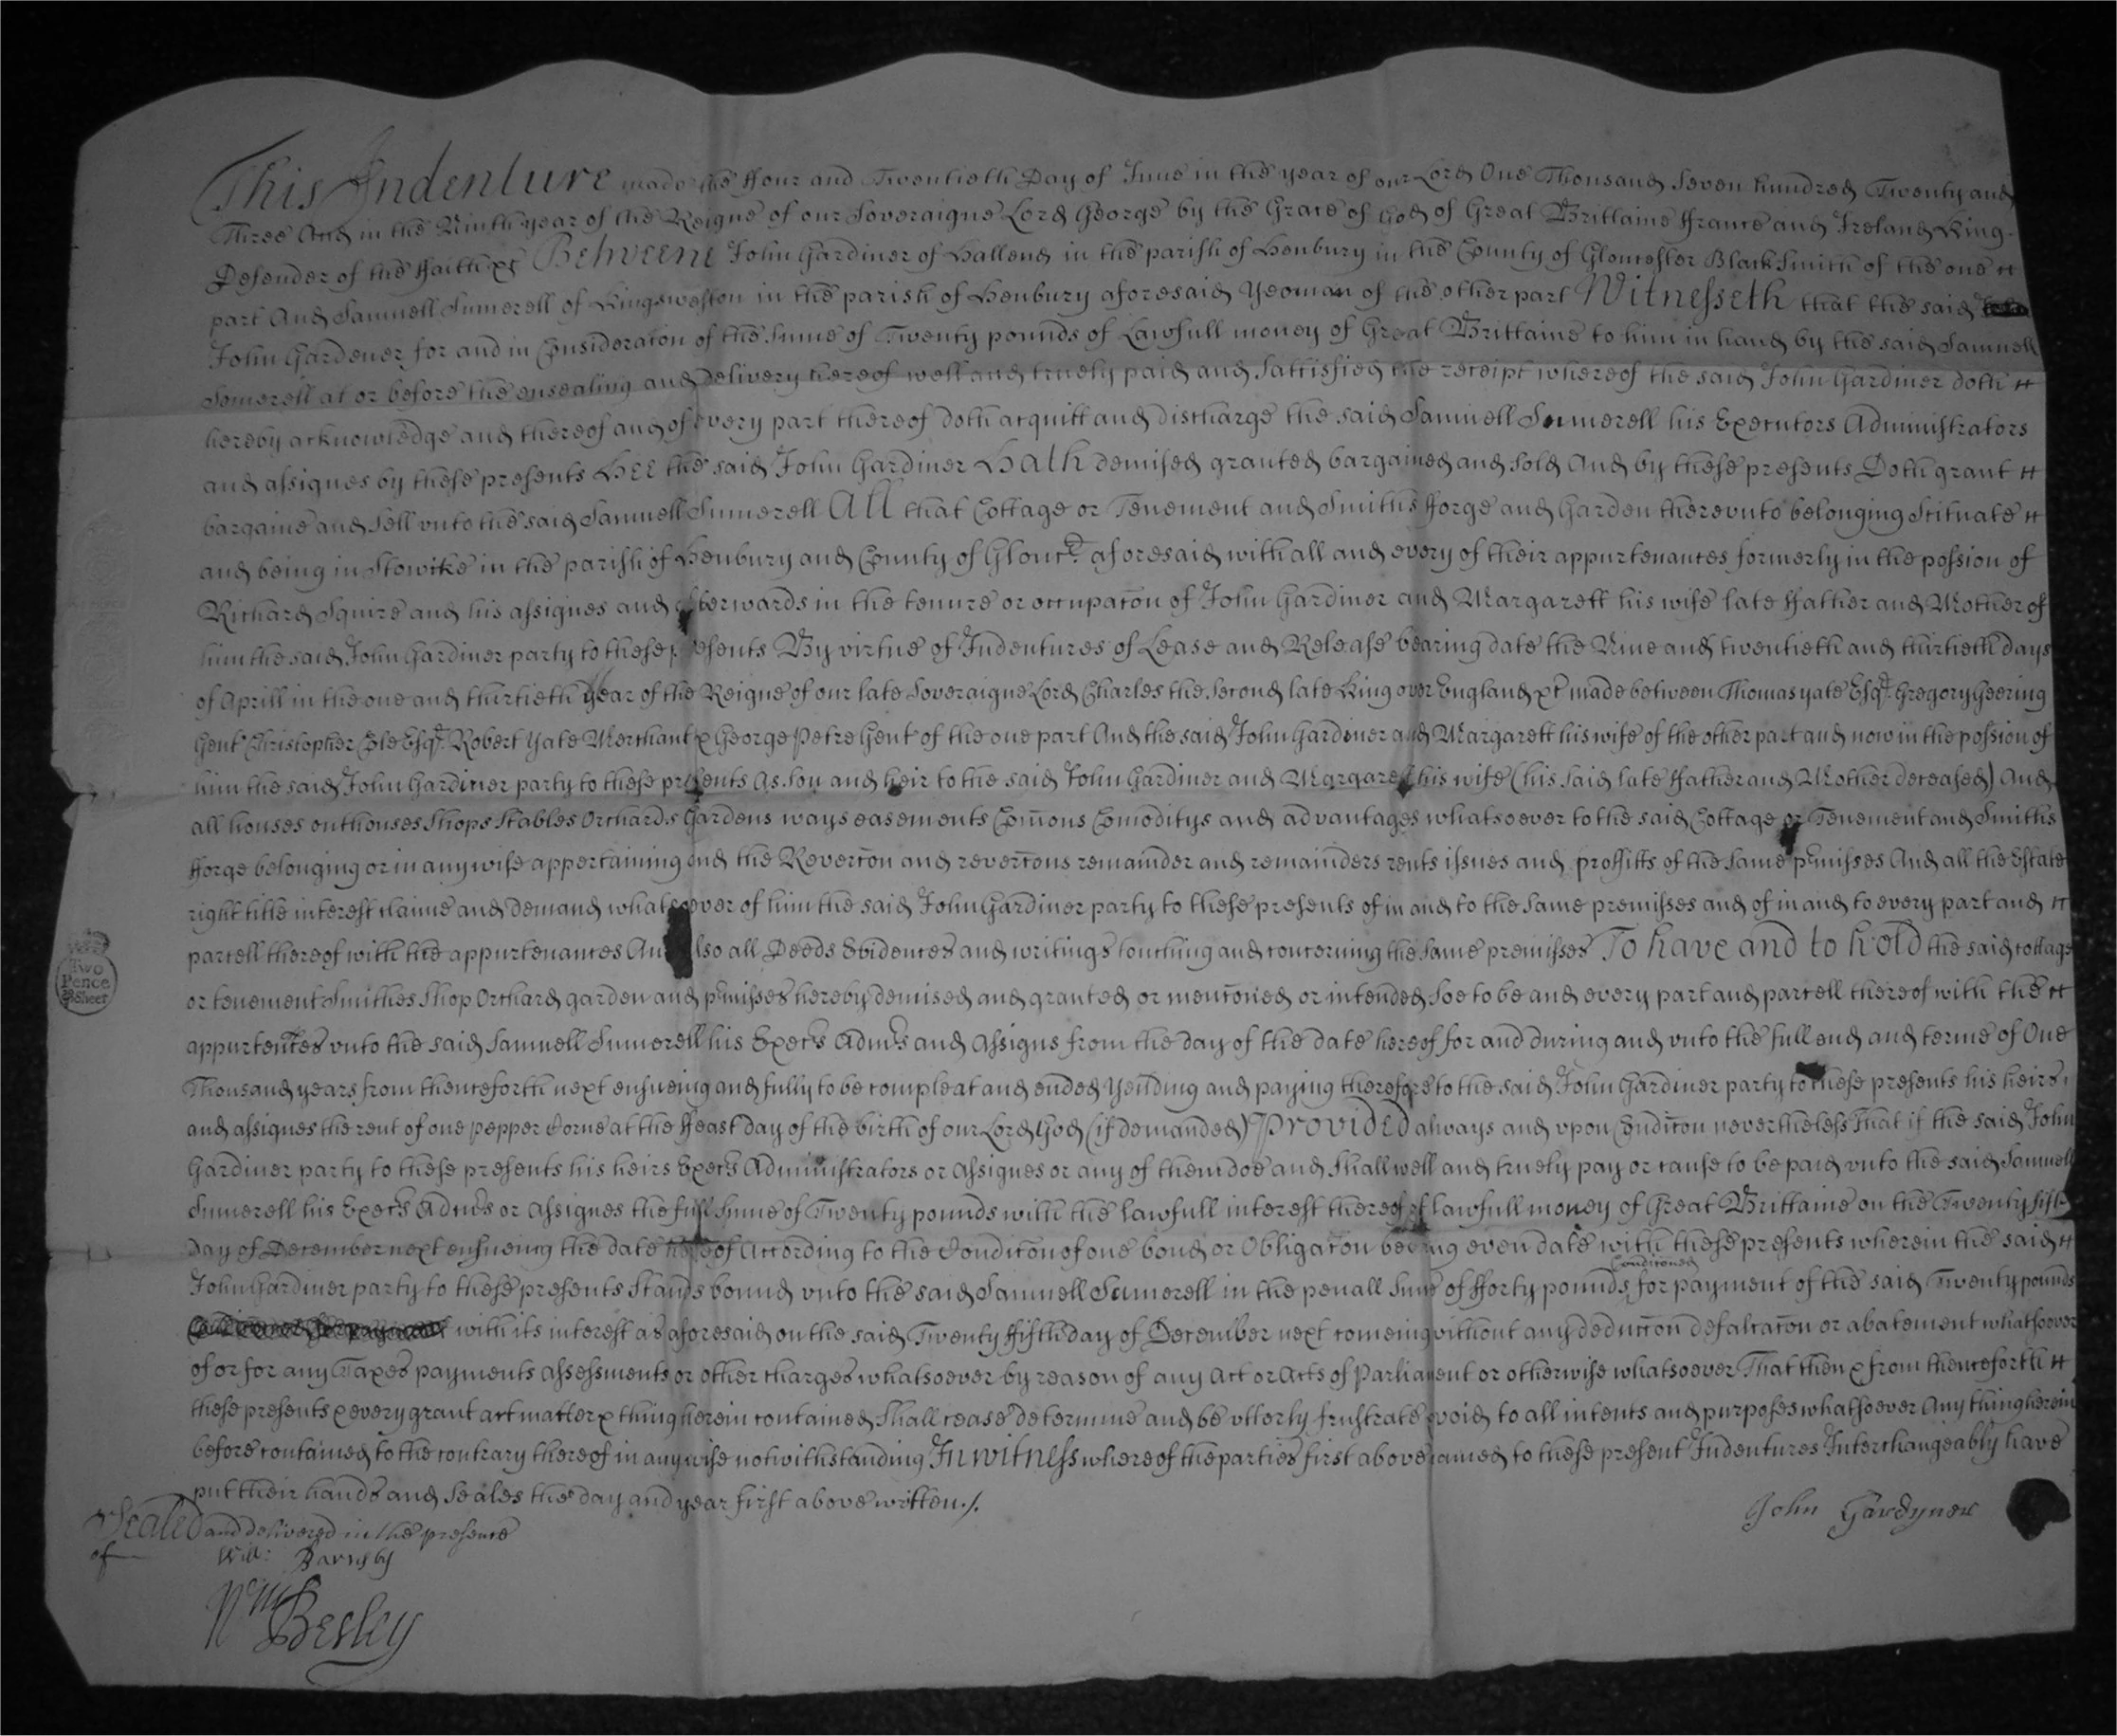 This Indenture made the ffour and Twentieth Day of June in the year of our Lord One Thousand Seven hundred Twenty and
Three And in the Ninth year of the Reigne of our Soveraigne Lord George by the Grace of God of Great Brittaine ffrance and Ireland King
Defender of the ffaith &c Betweene John Gardiner of Hallend in the parish of Henbury in the County of Gloucester BlackSmith of the one
part And Samuell Sumerell of Kingsweston in the parish of Henbury aforesaid Yeoman of the other part Witnesseth that the said
John Gardener for and in Consideracon of the Sume of Twenty pounds of Lawfull money of Great Brittaine to him in hand by the said Samuell
Somerell at or before the ensealing and Delivery hereof well and truely paid and Sattisfied the receipt whereof the said John Gardiner doth
hereby acknowledge and thereof and of every part thereof doth acquitt and discharge the said Samuell Sumerell his Executors Administrators
and assignes by these presents Hee the said John Gardiner Hath demised granted bargained and sold And by these presents Doth grant
bargaine and Sell unto the said Samuell Sumerell All that Cottage or Tenement and Smiths fforge and Garden thereunto belonging Scituate
and being in Stowike in the parish of Henbury and County of Glouc.r aforesaid with all and every of their appurtenances formerly in the possion of
Richard Squire and his assignes and afterwards in the tenure or occupacon of John Gardiner and Margarett his wife late ffather and Mother of
him the said John Gardiner party to these presents By virtue of Indentures of Lease and Release bearing date the Nine and twentieth and thirtieth days
of Aprill in the one and thirtieth year of the Reigne of our late Soveraigne Lord Charles the Second late King over England &c made between Thomas yate Esqr. Gregory Geering
Gent Christopher Cole Esqr. Robert Yate Merchant & George Petre Gent of the one part And the said John Gardiner and Margarett his wife of the other part and now in the possion of
him the said John Gardiner party to these presents As Son and heir to the said John Gardiner and Margarett his wife (his said late ffather and Mother deceased) And
all houses outhouses Shops Stables Orchards Gardens ways easements Comons Comoditys and advantages whatsoever to the said Cottage or Tenement and Smiths
fforge belonging or in any wise appertaining And the Revercon and revercons remainder and remainders rents issues and proffitts of the same p'misses And all the Estate
right title interest claime and demand whatsoever of him the said John Gardiner party to these presents of in and to the same premisses and of in and to every part and
parcell thereof with the appurtenances And also all Deeds Evidences and writings touching and concerning the same premisses To have and to hold the said cottage
or tenement Smithes Shop Orchard garden and p'misses hereby demised and granted or mencioned or intended soe to be and every part and parcell thereof with the
appurtences unto the said Samuell Sumerell his Exec.rs Adm.rs and Assigns from the day of the date hereof for and during and unto the full end and terme of One
Thousand years from thenceforth next ensueing and fully to be compleat and ended Yeilding and paying therefore to the said John Gardiner party to these presents his heirs
and assignes the rent of one pepper Corne at the ffeast day of the birth of our Lord God (if demanded) Provided always and upon Condicon neverthelesse That if the said John
Gardiner party to these presents his heirs Exec.rs Administrators or Assignes or any of them doe and Shall well and truely pay or cause to be paid unto the said Samuell
Sumerell his Exec.rs Adm.rs or Assignes the full Sume of Twenty pounds with the lawfull interest thereof of lawfull money of Great Brittaine on the Twenty fift
Day of December next ensueing the date hereof According to the Condicon of one bond or Obligacon bearing even date with these presents wherein the said
John Gardiner party to these presents Stands bound unto the said Samuell Sumerell in the penall Sume of fforty pounds Conditoned for payment of the said Twenty pounds
with its interest as aforesaid on the said Twenty ffifth day of December next comeing without any deduccon defalcacon or abatement whatsoever
of or for any Taxes payments Assessments or other charges whatsoever by reason of any Act or Acts of Parliament or otherwise whatsoever That then & from thenceforth
these presents & every grant act matter & thing herein contained Shall cease determine and be utterly frustrate & void to all intents and purposes whatsoever Any thing herein
before contained to the contrary thereof in any wise notwithstanding In witness whereof the parties first above named to these present Indentures Interchangeably have
put their hands and Seales the day and year first above written ./.
Sealed and delivered in the presence
of
Will: Barnsby
Wm Besley
John Gardyner
Two
Pence
Sheet